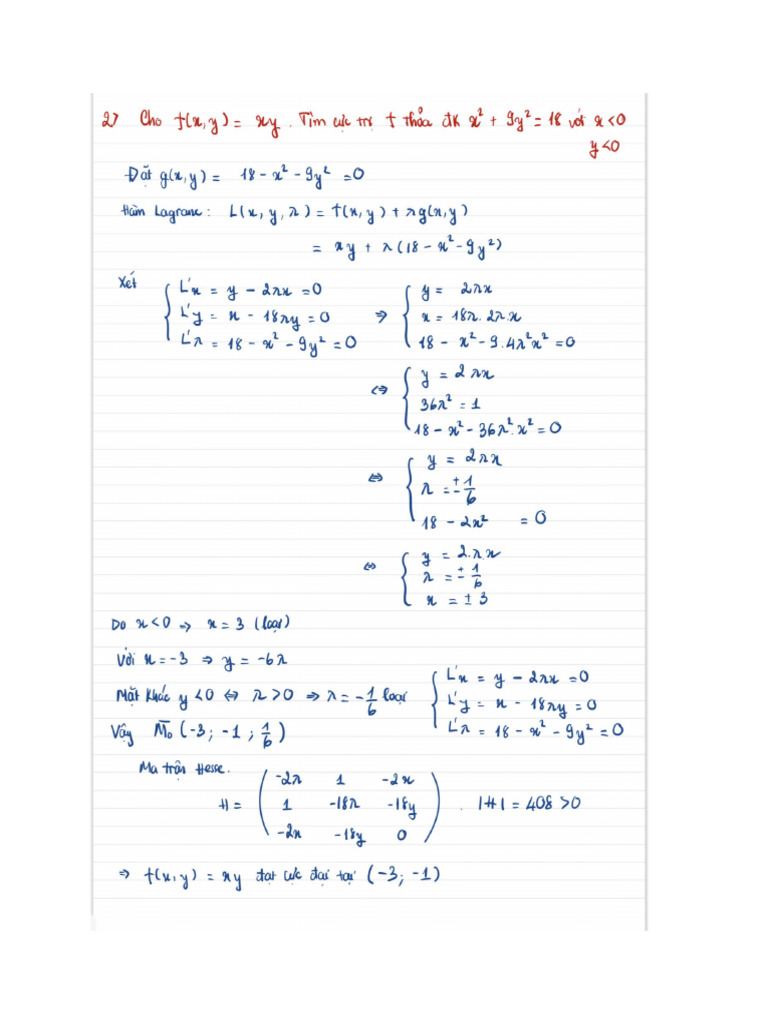 27 Cho f(x,y) = xy. Tìm cực trị f thỏa đk x² + 9y² = 18 với x<0
y<0
Đặt g(x,y) = 18 - x² - 9y² = 0
Hàm Lagrane: L(x, y, λ) = f(x,y) + λg(x,y)
= xy + λ(18 - x² - 9y²)
Xét { L'x = y - 2λx = 0 ⇒ { y = 2λx
L'y = x - 18λy = 0 x = 18λ. 2λ.x
L'λ = 18 - x² - 9y² = 0 18 - x² - 9.4λ²x² = 0
⇔ { y = 2λx
36λ² = 1
18 - x² - 36λ².x² = 0
⇔ { y = 2λx
λ = ± 1/6
18 - 2x² = 0
⇔ { y = 2.λ.x
λ = ± 1/6
x = ± 3
Do x<0 ⇒ x = 3 (loại)
Với x = -3 ⇒ y = -6λ
Mặt khác y<0 ⇔ λ>0 ⇒ λ = - 1/6 loại
Vậy M₀ (-3; -1; 1/6)
{ L'x = y - 2λx = 0
L'y = x - 18λy = 0
L'λ = 18 - x² - 9y² = 0
Ma trận Hesse.
H = ( -2λ 1 -2x
1 -18λ -18y
-2x -18y 0 ) . |H| = 408 >0
⇒ f(x,y) = xy đạt cực đại tại (-3; -1)